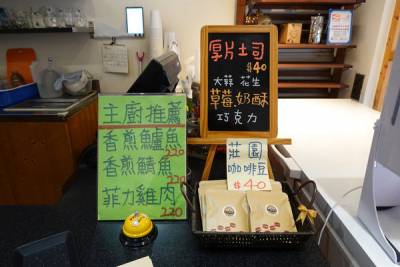 厚片土司
$40
大蒜 花生
草莓 奶酥
巧克力
主廚推薦
香煎鱸魚
220
香煎鯖魚
220
菲力雞肉
220
莊園
咖啡豆
$40